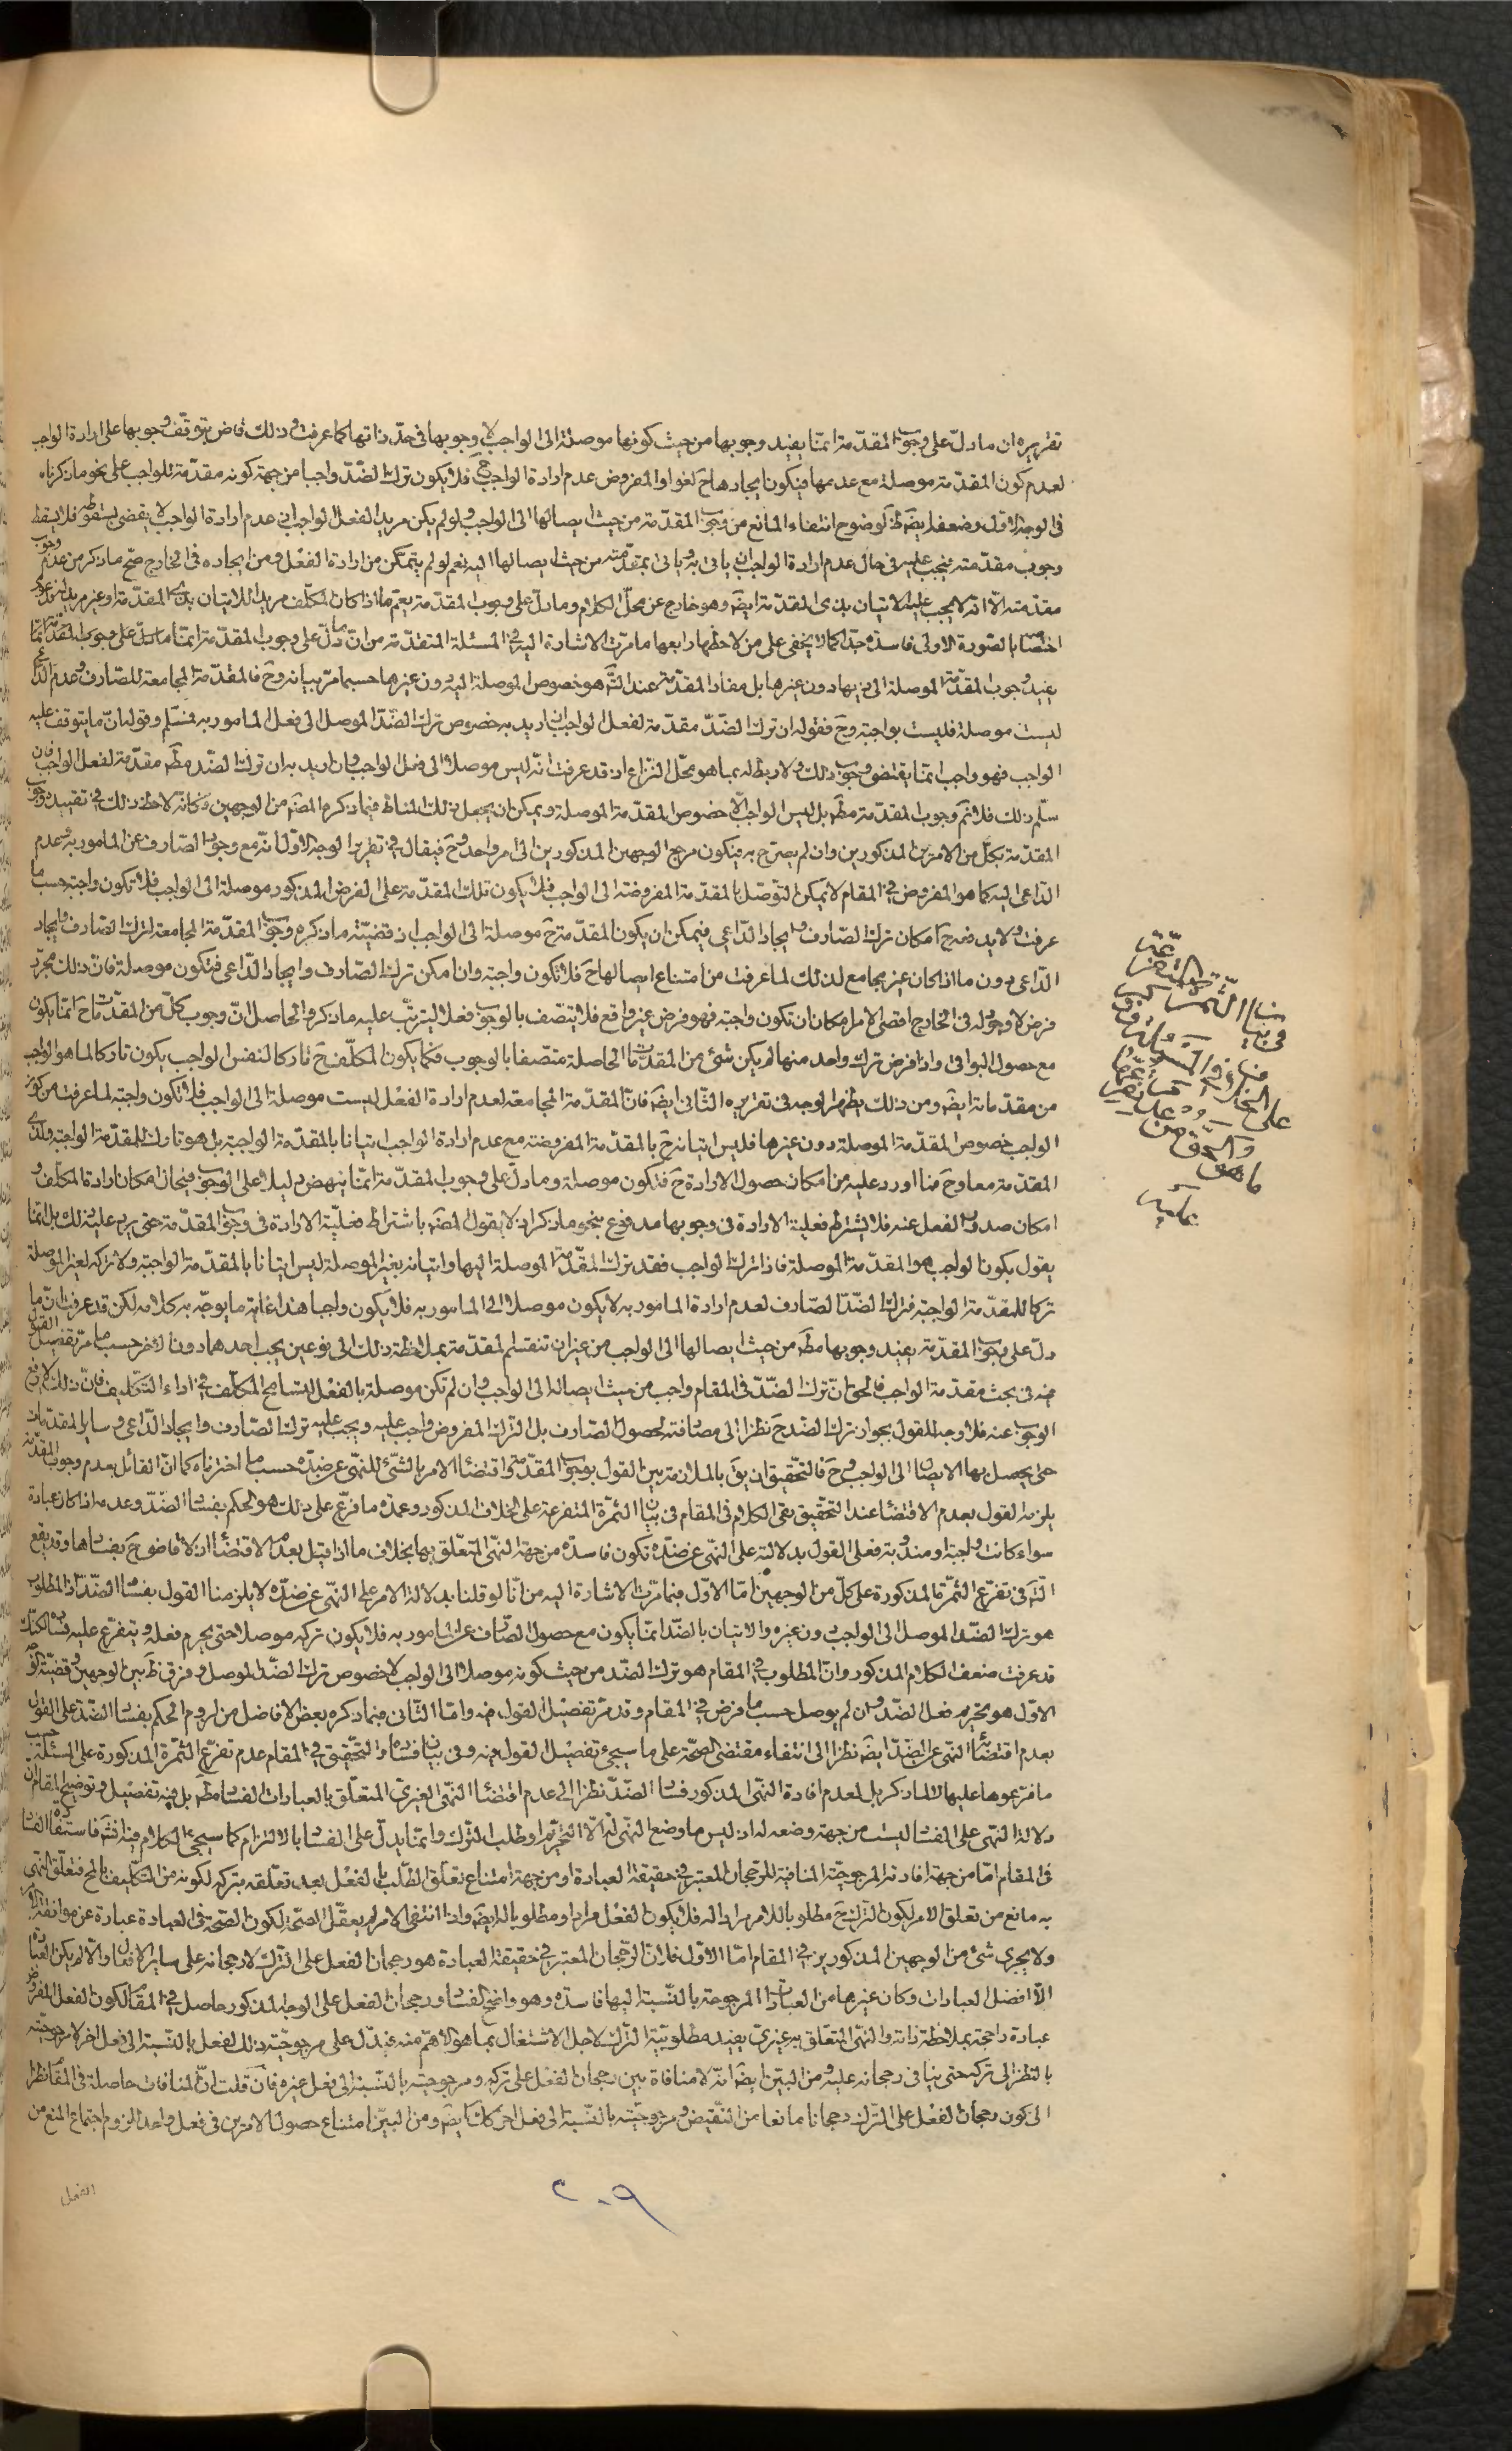 تقريره ان ما دلّ على وجوب المقدّمة انمّا يفيد وجوبها من حيث كونها موصلة الى الواجب لا وجوبها فى حدّ ذاتها كما عرفت وذلك قاض بتوقّف وجوبها على ارادة الواجب
لعدم كون المقدّمة موصلة مع عدمها فيكون ايجادها ح لغوا والمفروض عدم ارادة الواجب ح فلا يكون ترك الضّدّ واجبا من جهة كونه مقدّمة للواجب على نحو ما ذكرناه
فى الوجه الاوّل وضعفه ايضَ ظَ لوضوح انتفاء المانع من وجوب المقدّمة من حيث ايصالها الى الواجب ولو لم يكن مريدا لفعل الواجب اذ عدم ارادة الواجب لا يقضى بسقوطه فلا يسقط
وجوب مقدّمته فيجب عليه فى حال عدم ارادة الواجب ان ياتى به وياتى بمقدّمته من حيث ايصالها اليه نعم لو لم يتمكّن من ارادة الفعْل ومن ايجاده فى الخارج صحّ ما ذكر من عدم وجوب
مقدّمته الّا انّه لا يجب عليه الاتيان بذى المقدّمة ايضَ وهو خارج عن محلّ الكلام وما دلّ على وجوب المقدّمة يعمّ ما اذا كان المكلّف مريدا للاتيان بذى المقدّمة او غير مريد له فدعوى
اختصاصه بالصّورة الاولى فاسدة جدّا كما لا يخفى على من لاحظها رابعها ما مرّت الاشارة اليه فى المسئلة المتقدّمة من انّ ما دلّ على وجوب المقدّمة انمّا
يفيد وجوب المقدّمة الموصلة الى ذيها دون غيرها بل مفاد المقدّمة عند التَّه هو خصوص الموصلة اليه دون غيرها حسبما مرّ بيانه وحَ فالمقدّمة المجامعة للصارف وعدم الدّاعى
ليست موصلة فليست بواجبة وحَ فقوله ان ترك الضّدّ مقدّمة لفعل الواجب ان اريد به خصوص ترك الضّدّ الموصل الى فعل المامور به فمسلّم وقوله انّ ما يتوقف عليه
الواجب فهو واجب انمّا يقتضى وجوب ذلك ولا ربط له بما هو محلّ النّزاع اذ قد عرفت انّه ليس موصلا الى فعل الواجب وان اريد به ان ترك الضّد مطَ مقدّمة لفعل الواجب فان
سلّم ذلك فلا نمَ وجوب المقدّمة مطَ بل ليس الواجب الّا خصوص المقدّمة الموصلة ويمكن ان يجعل ذلك المناط فيما ذكره المصَ من الوجهين وكانّه لاحظ ذلك فى تقييده وجوب
المقدّمة بكلّ من الامرين المذكورين وان لم يصرّح به فيكون مرجع الوجهين المذكورين الى امر واحد وحَ فيقال فى تقرير الوجه الاوّل انّه مع وجود الصّارف عن المامور به وعدم
الدّاعى اليه كما هو المفروض فى المقام لا يمكن التّوصّل بالمقدّمة المفروضة الى الواجب فلا يكون تلك المقدّمة على الفرض المذكور موصلة الى الواجب فلا تكون واجبة حسبما
عرفت ولا يدفعه ح امكان ترك الصّارف وايجاد الدّاعى فيمكن ان يكون المقدّمة حَ موصلة الى الواجب اذ قضيّة ما ذكره وجوب المقدّمة المجامعة لترك الصّارف وايجاد
الدّاعى دون ما اذا كان غير مجامع لذلك لما عرفت من امتناع ايصالها حَ فلا تكون واجبة وان امكن ترك الصّارف وايجاد الدّاعى فتكون موصلة فانّ ذلك مجرّد
فرض لا وجود له فى الخارج اقصى الامر امكان ان تكون واجبة فهو فرض غير واقع فلا يتّصف بالوجوب فعلا ليترتّب عليه ما ذكر والحاصل انّ وجوب كلّ من المقدّمات حَ انمّا يكون
مع حصول البواقى واذا فرض ترك واحد منها لم يكن شئ من المقدّمات الحاصلة متّصفا بالوجوب فكما يكون المكلّف حَ تاركا لنفس الواجب يكون تاركا لما هو الواجب
من مقدّماته ايضَ ومن ذلك يظهر الوجه فى تقريره الثّانى ايضَ فانّ المقدّمة المجامعة لعدم ارادة الفعْل ليست موصلة الى الواجب فلا تكون واجبة لما عرفت من كون
الواجب خصوص المقدّمة الموصلة دون غيرها فليس اتيانه حَ بالمقدّمة المفروضة مع عدم ارادة الواجب اتيانا بالمقدّمة الواجبة بل هو تارك للمقدّمة الواجبة ولذى
المقدّمة معا وحَ فما اورد عليه من امكان حصول الارادة حَ فتكون موصلة وما دلّ على وجوب المقدّمة انمّا ينهض دليلا على الوجوب فى حال امكان ارادة المكلّف و
امكان صدور الفعل عنه فلا يشترط فعلية الارادة فى وجوبها مدفوع بنحو ما ذكر اذ لا يقول المصَ باشتراط فعليّة الارادة فى وجوب المقدّمة حتى يرد عليه ذلك بل انمّا
يقول بكون الواجب هو المقدّمة الموصلة فاذا ترك الواجب فقد ترك المقدّمة الموصلة اليها واتيانه بغير الموصلة ليس اتيانا بالمقدّمة الواجبة ولا تركه لغير الموصلة
تركا للمقدّمة الواجبة فترك الضّدّ الصّارف لعدم ارادة المامور به لا يكون موصلا الى المامور به فلا يكون واجبا هذا غاية ما يوجّه به كلامه لكن قد عرفت انّ ما
دلّ على وجوب المقدّمة يفيد وجوبها مطَ من حيث ايصالها الى الواجب من غير ان تنقسم المقدّمة بملاحظة ذلك الى نوعين يجب احدهما دون الاخر حسبما مرّ تفصيل القول
فيه فى بحث مقدّمة الواجب فالحقّ انّ ترك الضّدّ فى المقام واجب من حيث ايصاله الى الواجب وان لم تكن موصلة بالفعْل لتسامح المكلّف فى اداء التّكليف فانّ ذلك لا يرفع
الوجوب عنه فلا وجه للقول بجواز ترك الضّد حَ نظرا الى مصادفته لحصول الصّارف بل التّرك المفروض واجب عليه ويجب عليه ترك الصّارف وايجاد الدّاعى وساير المقدّمات
حتى يحصل بها الايصال الى الواجب وحَ فالتّحقيق ان يقَ بالملازمة بين القول بوجوب المقدّمة واقتضاء الامر بالشّئ للنّهى عن ضدّه حسبما اخترناه كما انّ القائل بعدم وجوب المقدّمة
يلزمه القول بعدم الاقتضاء عند التّحقيق بقى الكلام فى المقام فى بيان الثّمرة المتفرعة على الخلاف المذكور وعمدة ما فرّع على ذلك هو الحكم بفساد الضّدّ وعدمه اذا كان عبادة
سواء كانت واجبة او مندوبة فعلى القول بدلالته على النّهى عن ضدّه تكون فاسدة من جهة النّهى المتعّلق بها بخلاف ما اذا قيل بعدم الاقتضاء اذ لا قاضى حَ بفسادها وقد يقع
التَّه فى تفرّع الثّمرة المذكورة على كلّ من الوجهين امّا الاوّل فبما مرّت الاشارة اليه من انّا لو قلنا بدلالة الامر على النّهى عن ضدّه لا يلزمنا القول بفساد الضّدّ اذ المطلوب
هو ترك الضّدّ الموصل الى الواجب دون غيره والاتيان بالضّدّ انمّا يكون مع حصول الصّارف عن المامور به فلا يكون تركه موصلا حتى يحرم فعله ويتفرّع عليه فساده لكنّك
قد عرفت ضعف الكلام المذكور وانّ المطلوب فى المقام هو ترك الضّد من حيث كونه موصلا الى الواجب لا خصوص ترك الضّدّ الموصل وفرق ظَ بين الوجهين وقضيّة
الاوّل هو تحريم فعل الضّدّ وان لم يوصل حسبما فرض فى المقام وقد مرّ تفصيل القول فيه وامّا الثّانى فبما ذكره بعض الافاضل من لزوم الحكم بفساد الضّدّ على القول
بعدم اقتضائه النّهى عن الضّدّ ايضَ نظرا الى انتفاء مقتضى الصّحة على ما سيجئ تفصيل القول فيه وفى بيان فساده والتّحقيق فى المقام عدم تفرّع الثّمرة المذكورة على المسئلة حسب
ما فرّعوها عليها لا لما ذكر بل لعدم افادة النّهى المذكور فساد الضّدّ نظرا الى عدم اقتضاء النّهى الغيرى المتعلّق بالعبادات الفساد مطَ بل فيه تفصيل وتوضيح المقام ان
دلالة النّهى على الفساد ليست من جهة وضعه له اذ ليس ما وضع النّهى له الّا التّحريم او طلب التّرك وانمّا يدلّ على الفساد بالالتزام كما سيجئ الكلام فيه انشَه فاستفادة الفساد
فى المقام امّا من جهة افادته المرجوحيّة المنافية للرّجحان المعتبر فى حقيقة العبادة او من جهة امتناع تعلّق الطّلب بالفعْل بعد تعلّقه بتركه لكونه من التّكليف بالمحَ فتعلّق النّهى
به مانع من تعلّق الامر لكون التّرك حَ مطلوبا للامر مرادا له فلا يكون الفعْل مرادا ومطلوبا له ايضَ واذا انتفى الامر لم يعقل الصّحّة لكون الصّحّة فى العبادة عبارة عن موافقة الامر
ولا يجرى شئ من الوجهين المذكورين فى المقام امّا الاوّل فلانّ الرّجحان المعتبر فى حقيقة العبادة هو رجحان الفعل على التّرك لا رجحانه على ساير الافعال والّا لم يكن العبادة
الّا افضل العبادات وكان غيرها من العبادات المرجوحة بالنّسبة اليها فاسدة وهو واضح الفساد ورجحان الفعل على الوجه المذكور حاصل فى المقام لكون الفعل المفروض
عبادة راجحة بملاحظة ذاته والنّهى المتعّلق به غيرىّ يفيد مطلوبيّة التّرك لاجل الاشتغال بما هو الاهمّ منه فيدّل على مرجوحيّة ذلك الفعل بالنّسبة الى فعل اخر لا مرجوحيّته
بالنّظر الى تركه حتى ينافى رجحانه عليه ومن البيّن ايضَ انّه لا منافاة بين رجحان الفعْل على تركه ومرجوحيته بالنّسبة الى فعل غيره فان قلت انّ المنافات حاصلة فى المقام نظرا
الى كون رجحان الفعْل على التّرك رجحانا مانعا من النّقيض ومرجوحيّته بالنّسبة الى فعل اخر كذلك ايضَ ومن البيّن امتناع حصول الامرين فى فعل واحد للزوم اجتماع المنع من
الفعل
فى بيان الثّمرة
على الخلاف فى المسئلة
ما هو
عليه
٢٠٩